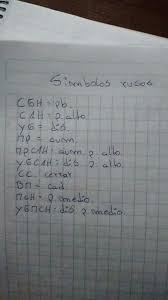 Simbolos rusos
СБН = pb.
СЛН = p. alto
УБ = dis.
ПР = aum.
ПРСЛН: aum. p. alto.
УБСЛН: dis. p. alto.
СС. cerrar
ВП = cad.
ПСН = p. medio.
УБПСН: dis. p. medio.